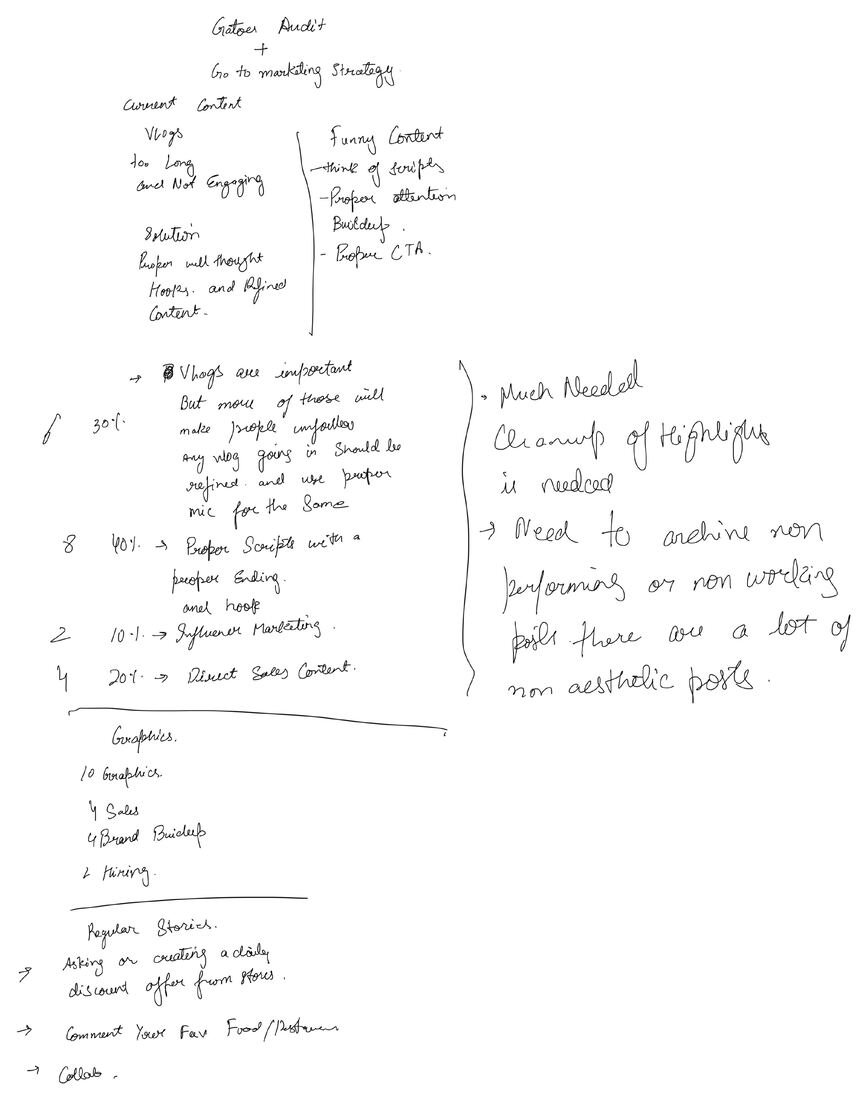 Gatoes Audit
+
Go to marketing Strategy.
Current Content
Vlogs
too Long
and Not Engaging
Solution
Proper well thought
Hooks. and Refined
Content.
Funny Content
- think of scripts
- Proper attention
Buildup.
- Proper CTA.
→ Vlogs are important
But more of those will
make people unfollow
Any vlog going in Should be
refined. and use proper
mic for the Same
6 30%.
8 40%. → Proper Scripts with a
proper Ending.
and hook
2 10%. → Influener Marketing.
4 20%. → Direct Sales Content.
• Much Needed
Cleanup of Highlights
is needed
→ Need to archive non
performing or non working
posts there are a lot of
non aesthetic posts.
Graphics.
10 Graphics.
4 Sales
4 Brand Buildup
2 Hiring.
Regular Stories.
→ Asking or creating a daily
discount offer from stores.
→ Comment Your Fav Food/
→ Collab.